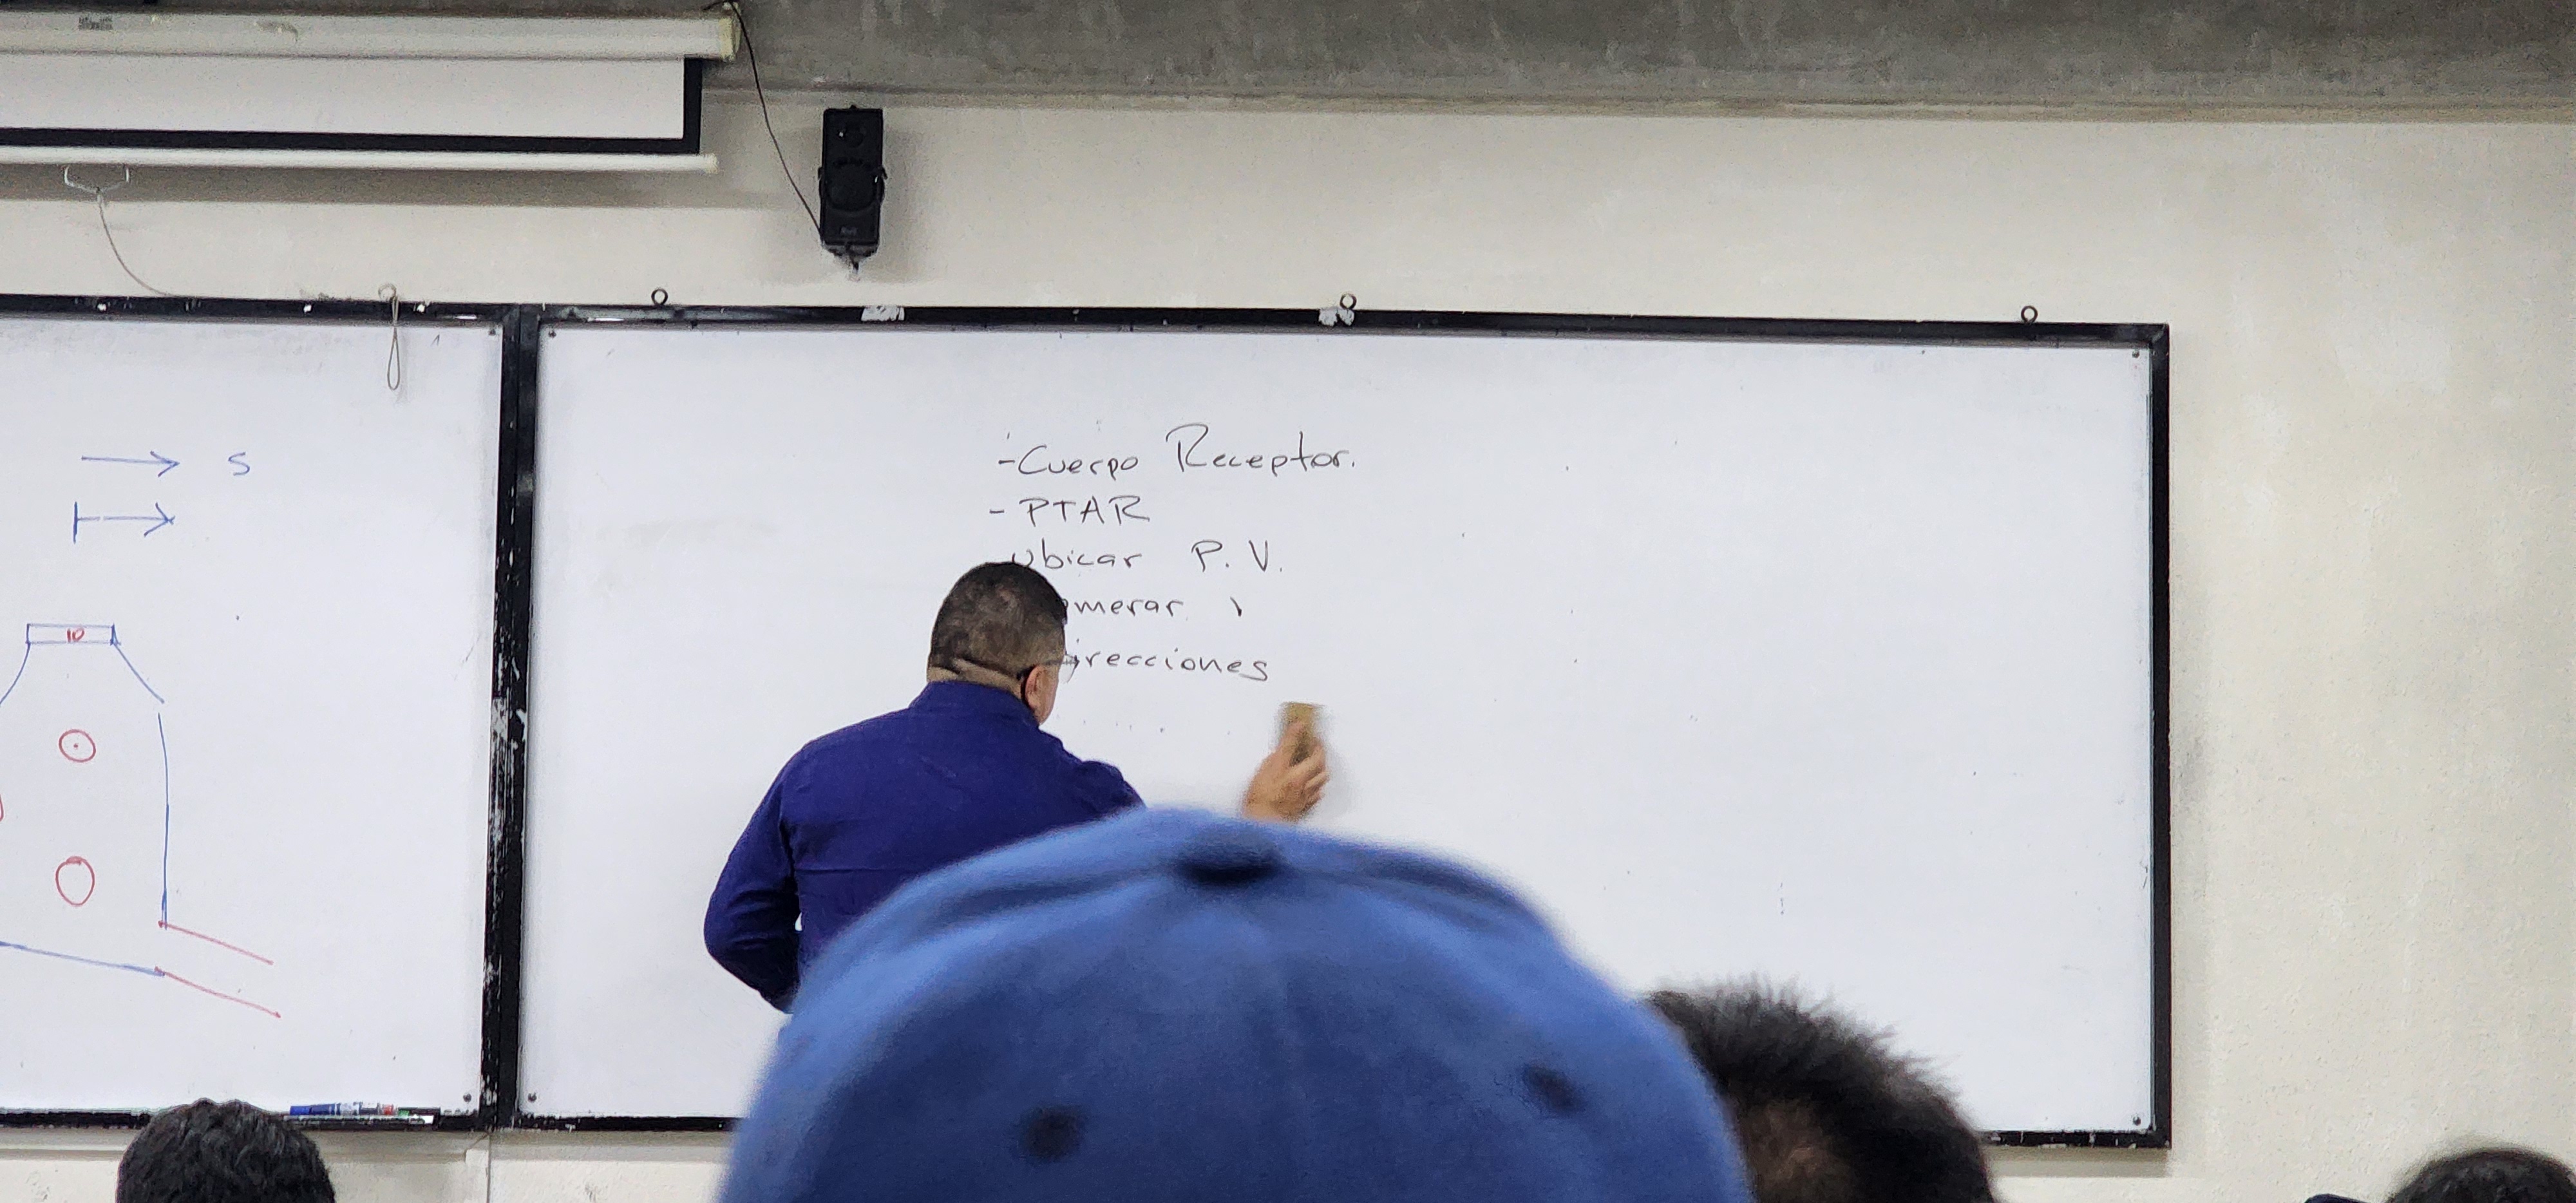 S
10
-Cuerpo Receptor.
- PTAR
Ubicar P. V.
merar
recciones